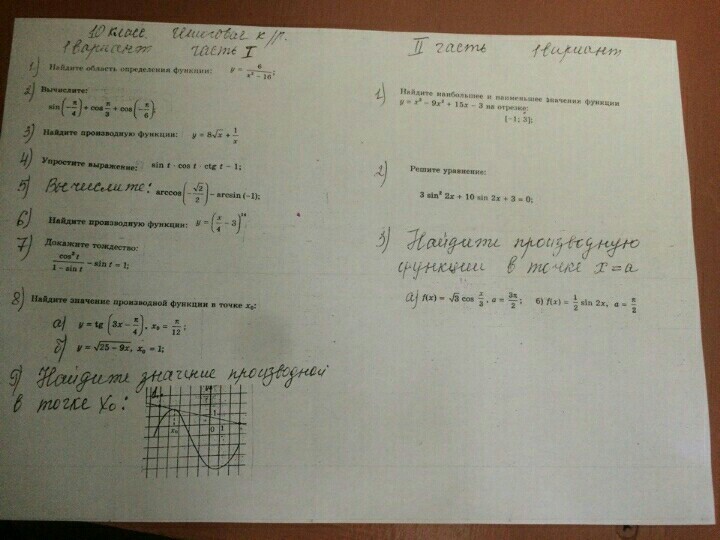 10 класс. Итоговая к/р.
1 вариант часть I
1) Найдите область определения функции: y = 6/(x² − 16);
2) Вычислите:
sin(−π/4) + cos π/3 + cos(−π/6)
3) Найдите производную функции: y = 8√x + 1/x
4) Упростите выражение: sin t · cos t · ctg t − 1;
5) Вычислите: arccos(−√2/2) − arcsin (−1);
6) Найдите производную функции: y = (x/4 − 3)¹⁴
7) Докажите тождество:
cos² t/(1 − sin t) − sin t = 1;
8) Найдите значение производной функции в точке x₀:
а) y = tg (3x − π/4), x₀ = π/12;
б) y = √(25 − 9x), x₀ = 1;
9) Найдите значение производной
в точке x₀:
y
1
x₀ 0 1
II часть 1 вариант
1) Найдите наибольшее и наименьшее значения функции
y = x³ − 9x² + 15x − 3 на отрезке:
[−1; 3];
2) Решите уравнение:
3 sin² 2x + 10 sin 2x + 3 = 0;
3) Найдите производную
функции в точке x = a
а) f(x) = √3 cos x/3, a = 3π/2; б) f(x) = 1/2 sin 2x, a = π/2